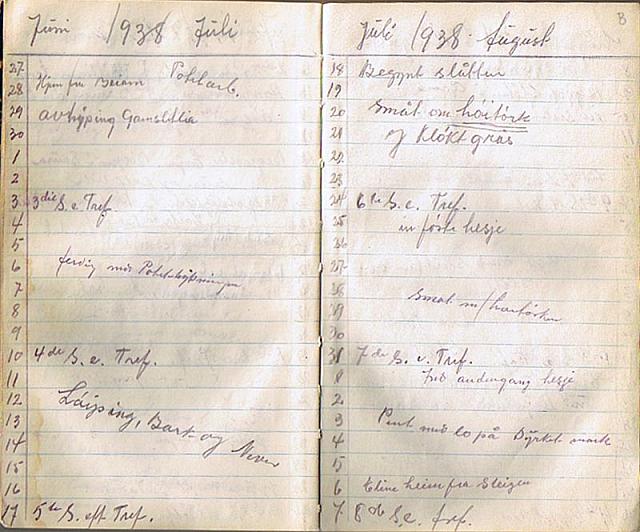 Juni 1938 Juli
27
28 Hjem fra Beiarn Potetarb.
29 avhyping Gamslitlia
30
1
2
3 3die S. e. Tref.
4
5
6 ferdig med
7
8
9
10 4de S. e. Tref.
11
12
13 Bark og Never
14
15
16
17 5te S. eft Tref.
Juli 1938 August B
18 Begynt slåtten
19
20 Småt om höitörk
21 og Klökt gras
22
23
24 6te S. e. Tref.
25 in föste hesje
26
27
28
29 Småt m/
30
31 7de S. e. Tref.
1 andengang hesje
2
3 Pent med lo på Dyrket mark
4
5
6 Eline heim fra Steigen
7 8de S e. Tref.